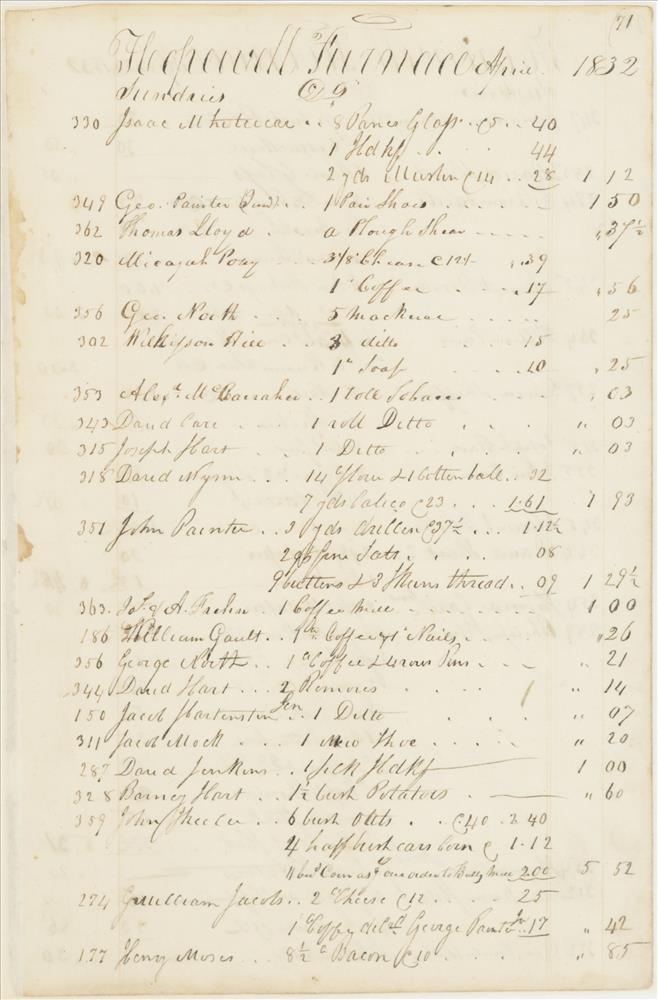 71
Hopewell Furnace April 1832
Sundries Dr
330 Isaac .. 8 Panes Glass C5 .. 40
1 Hdkf .. 44
2 yds Muslin C14 .. 28 1 12
349 Geo. Painter .. 1 Pair Shoes 1 50
362 Thomas Lloyd . a Plough Shear " 37½
320 Micajah Posey .. 3⅛ Cheese C12½ " 39
1 " Coffee .. 17 " 56
356 Geo. North .. 5 Mackerel 25
302 Wilkinson .. 3 ditto 15
1 " Soap 10 " 25
353 Alexr. .. 1 roll Tobacco " 03
343 David Care 1 roll Ditto " 03
315 Joseph Hart 1 Ditto " 03
318 David Wynn .. 14 " flour & 1 cotton ball .. 32
7 yds Calico C23 .. 1.61 1 93
351 John Painter .. 3 yds drillen C37½ .. 1.12½
08
9 buttons & 3 Skeins thread .. 09 1 29½
363. & A. 1 Coffee mill 1 00
186 William Gault .. 1 lb Coffee & 1 " Nails " 26
356 George North .. 1 " Coffee & 4 rows Pins " 21
344 David Hart .. 2 Removes " 14
150 Jacob Hartenstein Sen .. 1 Ditto " 07
311 Jacob Mock 1 new Shoe " 20
287 David Jenkins . 1 silk Hdkf 1 00
328 Barney Hart .. 1½ bush Potatoes " 60
359 John Sheeler .. 6 bush Oats .. C40 . 2 40
4 half bush ears Corn C 1.12
4 bus Corn as our order to 2.00 5 52
274 William Jacobs .. 2 " Cheese C12 25
1 " Coffey deld. George Painter Jr .. 17 " 42
177 Henry Moses .. 8½ " Bacon C10 " 85